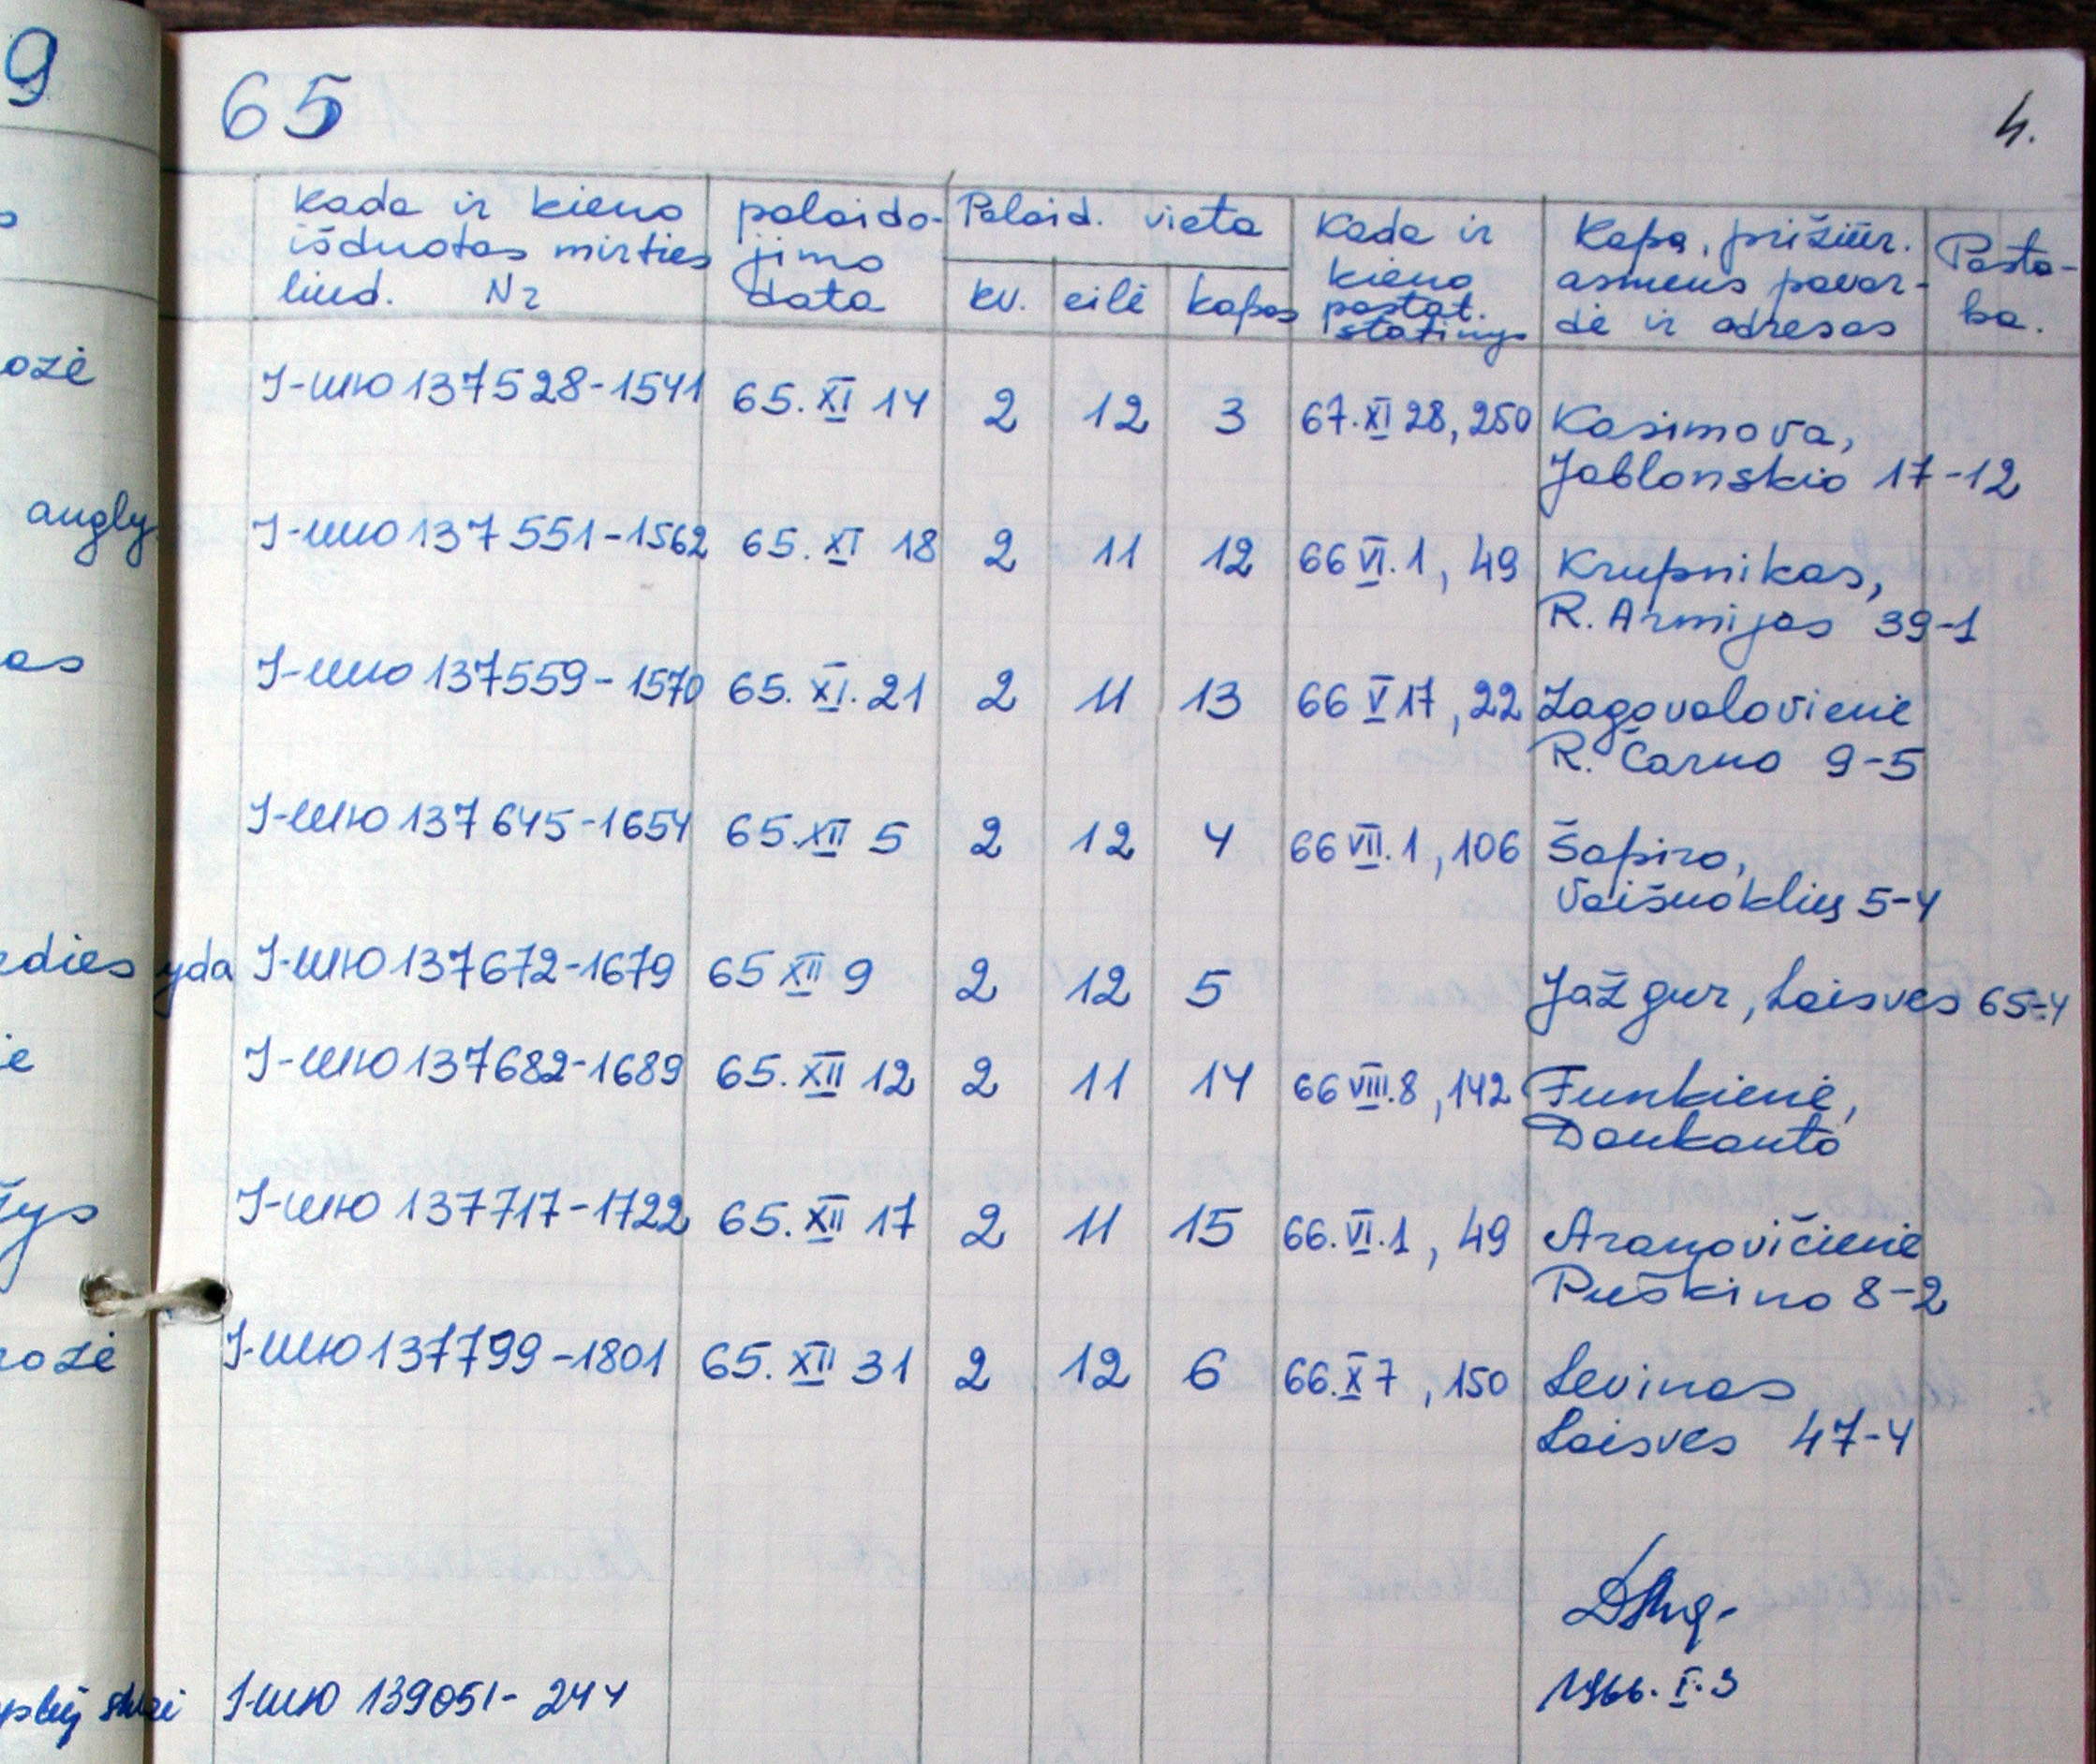 9
65
4.
Kada ir kieno
išduotas mirties
liud. Nr
palaido-
jimo
data
Palaid. vieta
kv. eilė kapas
Kada ir
kieno
pastat.
statinys
Kapą, prižiūr.
asmens pavar-
dė ir adresas
Pasta-
ba.
ozė
I-ШЮ 137528-1541 65.XI 14 2 12 3 67.XI 28, 250 Kasimova,
Jablonskio 17-12
augly
I-ШЮ 137551-1562 65.XI 18 2 11 12 66 VI.1, 49 Krupnikas,
R. Armijos 39-1
as
I-ШЮ 137559-1570 65.XI.21 2 11 13 66 V 17, 22 Zagovalovienė
R. Čarno 9-5
I-ШЮ 137645-1654 65.XII 5 2 12 4 66 VII.1, 106 Šapiro,
Vaišnoklių 5-4
rdies yda I-ШЮ 137672-1679 65 XII 9 2 12 5 Jažgur, Laisvės 65-4
I-ШЮ 137682-1689 65.XII 12 2 11 14 66 VIII.8, 142 Funkienė,
Daukanto
žys
I-ШЮ 137717-1722 65.XII 17 2 11 15 66.VI.1, 49 Aranovičienė
Puškino 8-2
rozė
I-ШЮ 137799-1801 65.XII 31 2 12 6 66.X 7, 150 Levinas
Laisvės 47-4
I-ШЮ 139051-244
1966.I.3